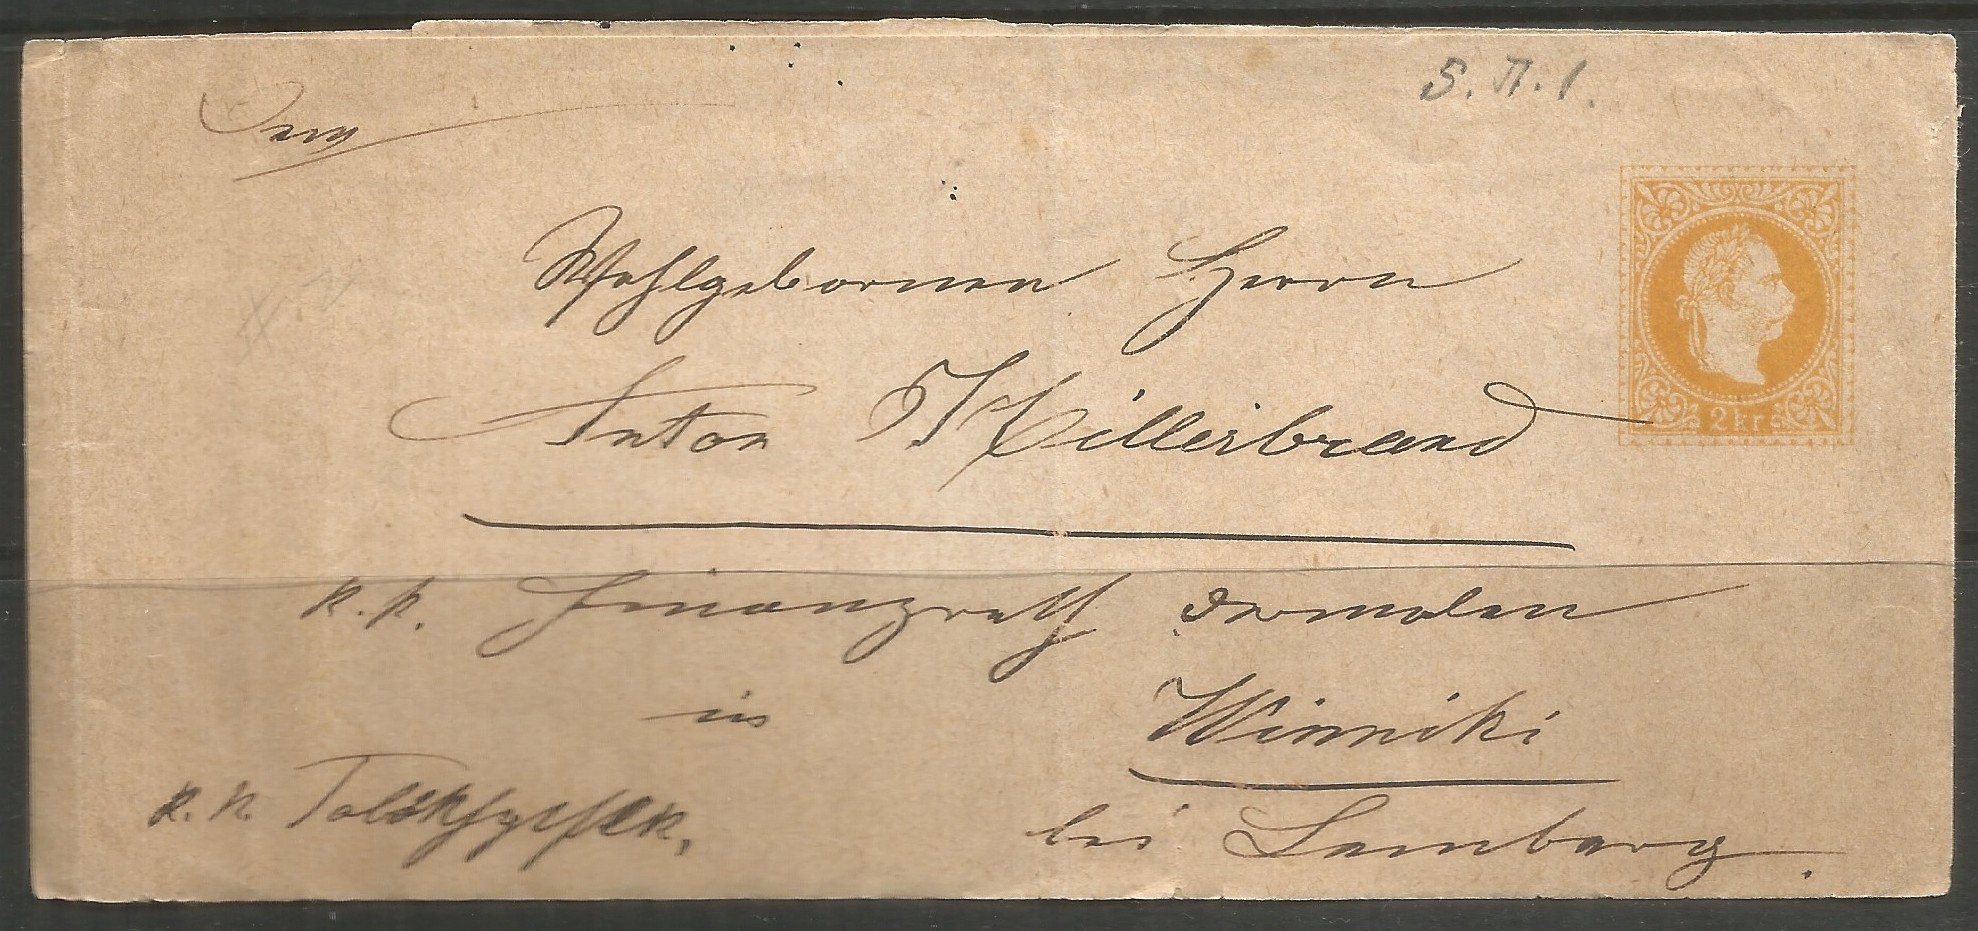 S. A. 1.
Dem
Wohlgebornen Herrn
Anton Hillerbrand
2 kr
k. k. Finanzrath dermalen
in Winniki
k. k.
bei Lemberg.